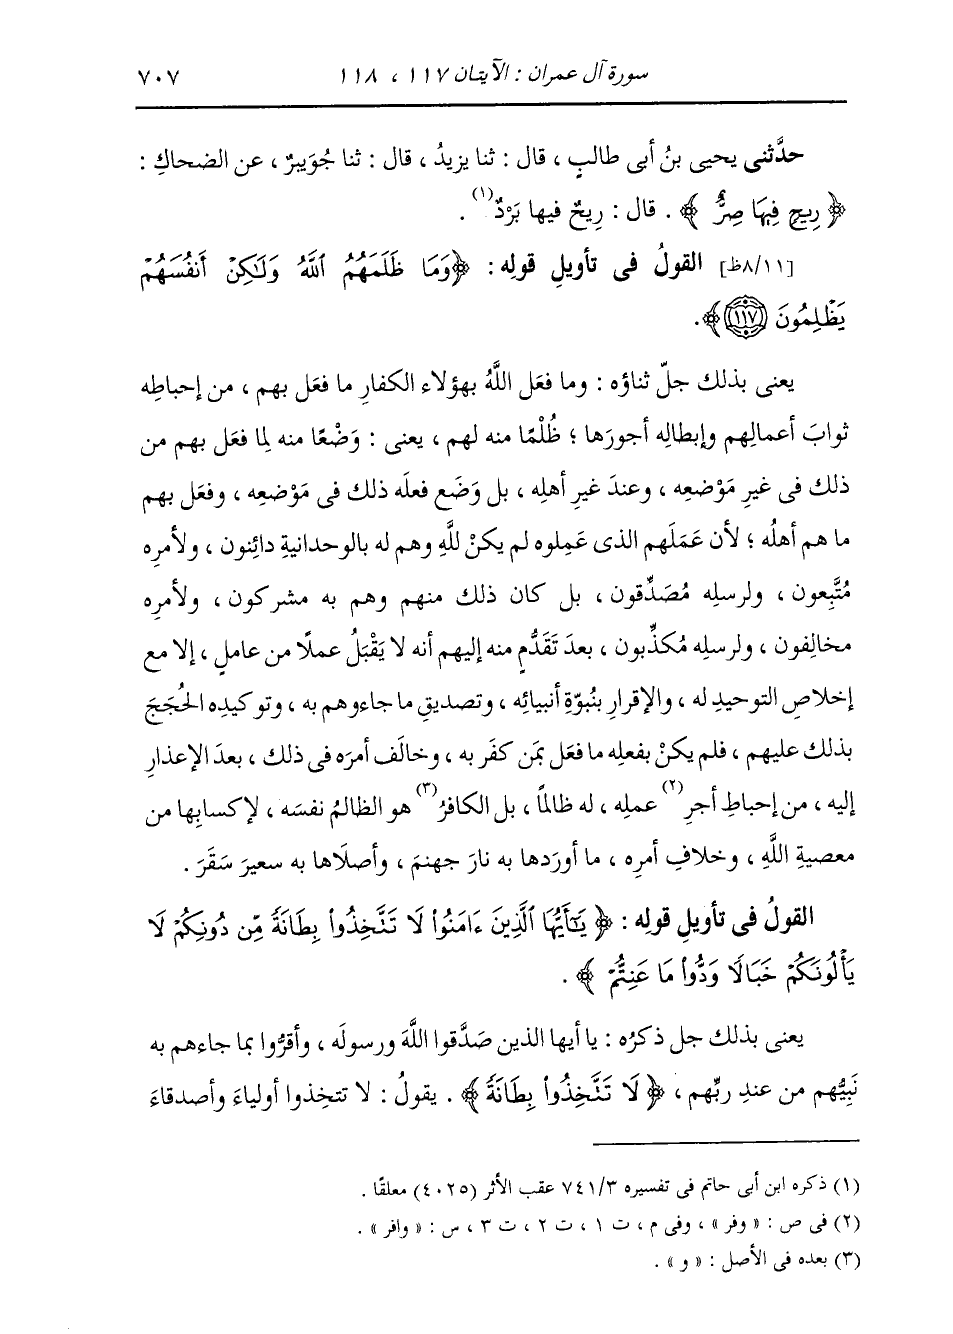 سورة آل عمران : الآيتان ١١٧ ، ١١٨ ٧٠٧
حدَّثنى يحيى بنُ أبى طالبٍ ، قال : ثنا يزيدُ ، قال : ثنا جُوَيبرٌ ، عن الضحاكِ :
﴿ رِيحٍ فِيهَا صِرٌّ ﴾ . قال : رِيحٌ فيها بَرْدٌ(١) .
[٨/١١ظ] القولُ فى تأويلِ قولِه : ﴿وَمَا ظَلَمَهُمُ ٱللَّهُ وَلَٰكِنْ أَنفُسَهُمْ
يَظْلِمُونَ ١١٧﴾ .
يعنى بذلك جلّ ثناؤه : وما فعَل اللَّهُ بهؤلاء الكفارِ ما فعَل بهم ، من إحباطِه
ثوابَ أعمالِهم وإبطالِه أجورَها ؛ ظُلْمًا منه لهم ، يعنى : وَضْعًا منه لِما فعَل بهم من
ذلك فى غيرِ مَوْضعِه ، وعندَ غيرِ أهلِه ، بل وَضَع فعلَه ذلك فى مَوْضعِه ، وفعَل بهم
ما هم أهلُه ؛ لأن عَمَلَهم الذى عَمِلوه لم يكنْ للَّهِ وهم له بالوحدانيةِ دائنون ، ولأمرِه
مُتَّبِعون ، ولرسلِه مُصَدِّقون ، بل كان ذلك منهم وهم به مشركون ، ولأمرِه
مخالِفون ، ولرسلِه مُكذِّبون ، بعدَ تَقَدُّمٍ منه إليهم أنه لا يَقْبَلُ عملًا من عاملٍ ، إلا مع
إخلاصِ التوحيدِ له ، والإقرارِ بنُبوّةِ أنبيائِه ، وتصديقِ ما جاءوهم به ، وتوكيدِه الحُجَجَ
بذلك عليهم ، فلم يكنْ بفعلِه ما فعَل بمَن كفَر به ، وخالَف أمرَه فى ذلك ، بعدَ الإعذارِ
إليه ، من إحباطِ أجرِ(٢) عملِه ، له ظالمًا ، بل الكافرُ(٣) هو الظالمُ نفسَه ، لإكسابِها من
معصيةِ اللَّهِ ، وخلافِ أمرِه ، ما أورَدها به نارَ جهنمَ ، وأصلَاها به سعيرَ سَقَرَ .
القولُ فى تأويلِ قولِه : ﴿ يَٰٓأَيُّهَا ٱلَّذِينَ ءَامَنُوا۟ لَا تَتَّخِذُوا۟ بِطَانَةً مِّن دُونِكُمْ لَا
يَأْلُونَكُمْ خَبَالًا وَدُّوا۟ مَا عَنِتُّمْ ﴾ .
يعنى بذلك جل ذكرُه : يا أيها الذين صَدَّقوا اللَّهَ ورسولَه ، وأقرُّوا بما جاءهم به
نَبِيُّهم من عندِ ربِّهم ، ﴿ لَا تَتَّخِذُوا۟ بِطَانَةً ﴾ . يقولُ : لا تتخِذوا أولياءَ وأصدقاءَ
(١) ذكره ابن أبى حاتم فى تفسيره ٧٤١/٣ عقب الأثر (٤٠٢٥) معلقًا .
(٢) فى ص : « وفر » ، وفى م ، ت ١ ، ت ٢ ، ت ٣ ، س : « وافر » .
(٣) بعده فى الأصل : « و » .